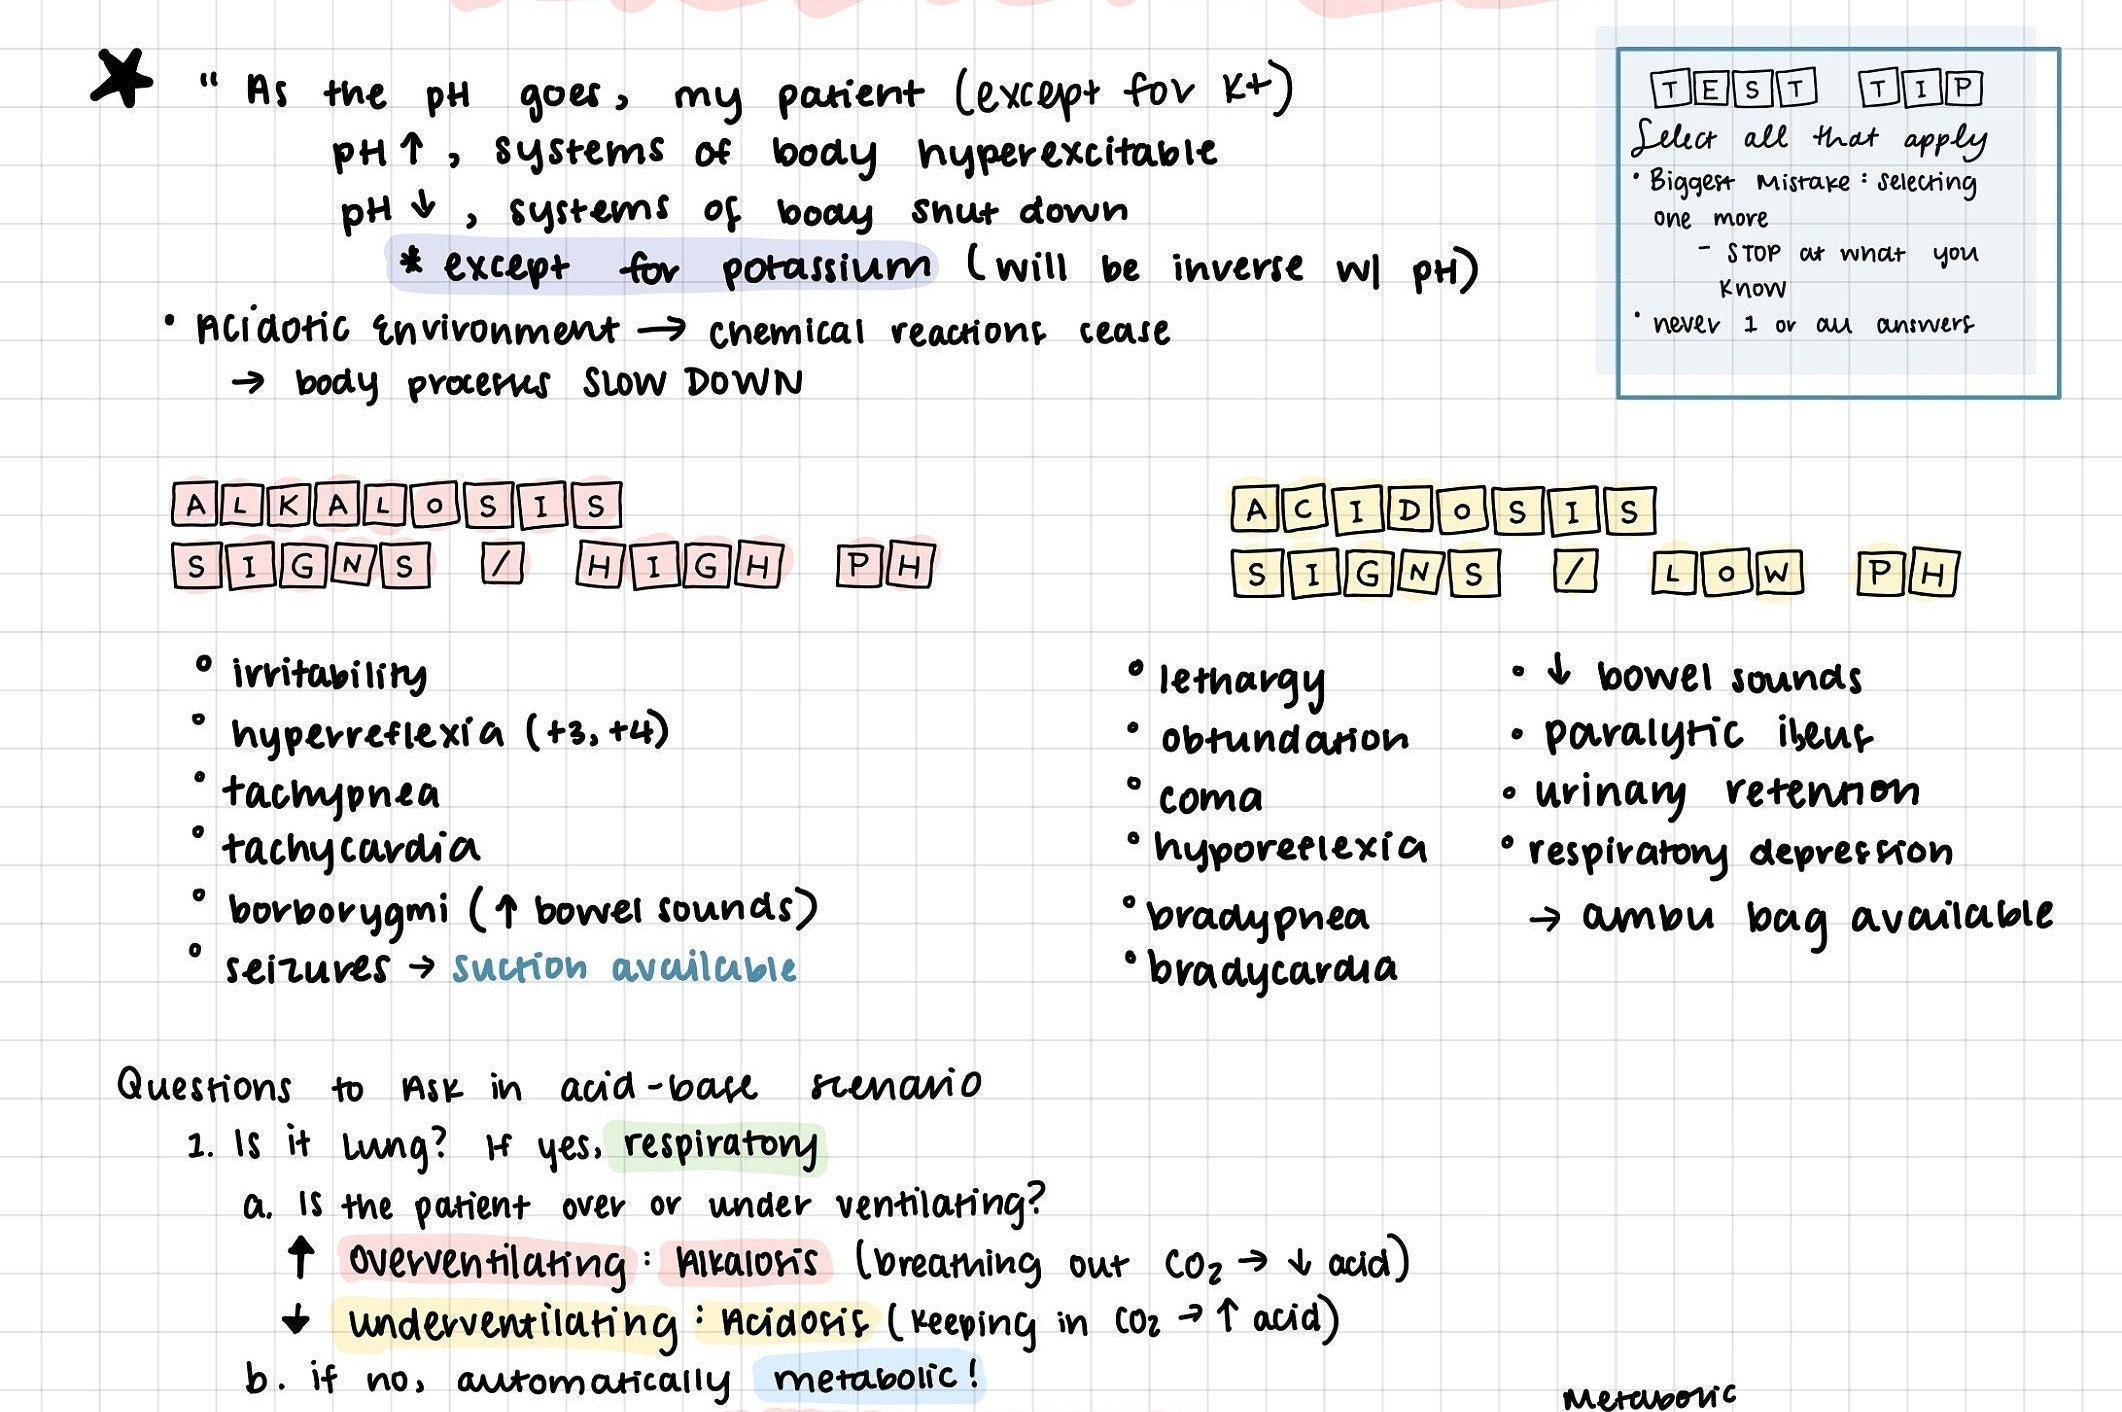 " As the pH goes, my patient (except for K+)
pH ↑, systems of body hyperexcitable
pH ↓, systems of body shut down
* except for potassium (will be inverse w/ pH)
• Acidotic Environment → chemical reactions cease
→ body processes SLOW DOWN
TEST TIP
Select all that apply
• Biggest Mistake: selecting
one more
- STOP at what you
know
• never 1 or all answers
ALKALOSIS
SIGNS / HIGH PH
• irritability
• hyperreflexia (+3, +4)
• tachypnea
• tachycardia
• borborygmi (↑ bowel sounds)
• seizures → suction available
ACIDOSIS
SIGNS / LOW PH
• lethargy
• obtundation
• coma
• hyporeflexia
• bradypnea
• bradycardia
• ↓ bowel sounds
• paralytic ileus
• urinary retention
• respiratory depression
→ ambu bag available
Questions to Ask in acid-base scenario
1. Is it Lung? If yes, respiratory
a. Is the patient over or under ventilating?
↑ overventilating: Alkalosis (breathing out CO₂ → ↓ acid)
↓ underventilating: Acidosis (keeping in CO₂ → ↑ acid)
b. if no, automatically metabolic!
Metabolic